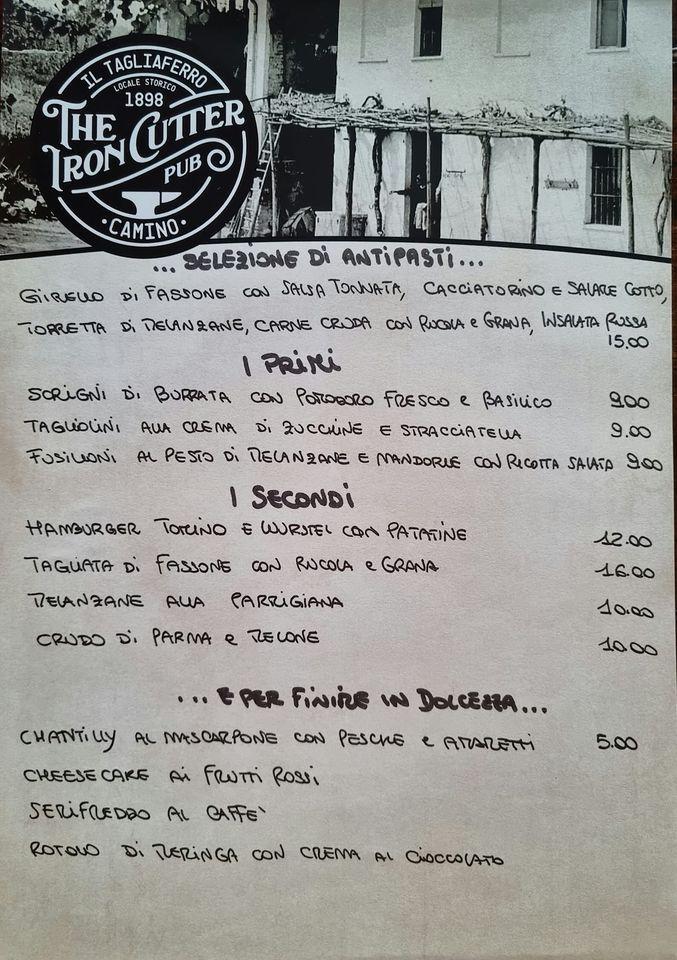 IL TAGLIAFERRO
LOCALE STORICO
1898
THE
IRON CUTTER
PUB
·CAMINO·
...SELEZIONE DI ANTIPASTI...
GIRELLO DI FASSONE CON SALSA TONNATA, CACCIATORINO E SALAME COTTO,
TORRETTA DI MELANZANE, CARNE CRUDA CON RUCOLA e GRANA, INSALATA RUSSA
15.00
I PRIMI
SCRIGNI DI BURRATA CON POMODORO FRESCO e BASILICO 9.00
TAGLIOLINI ALLA CREMA DI ZUCCHINE E STRACCIATELLA 9.00
FUSILLONI AL PESTO DI MELANZANE E MANDORLE CON RICOTTA SALATA 9.00
I SECONDI
HAMBURGER TOMINO E WURSTEL CON PATATINE 12.00
TAGLIATA DI FASSONE CON RUCOLA e GRANA 16.00
MELANZANE ALLA PARMIGIANA 10.00
CRUDO DI PARMA e MELONE 10.00
...E PER FINIRE IN DOLCEZZA...
CHANTILLY AL MASCARPONE CON PESCHE e AMARETTI 5.00
CHEESECAKE AI FRUTTI ROSSI
SEMIFREDDO AL CAFFE'
ROTOLO DI MERINGA CON CREMA AL CIOCCOLATO